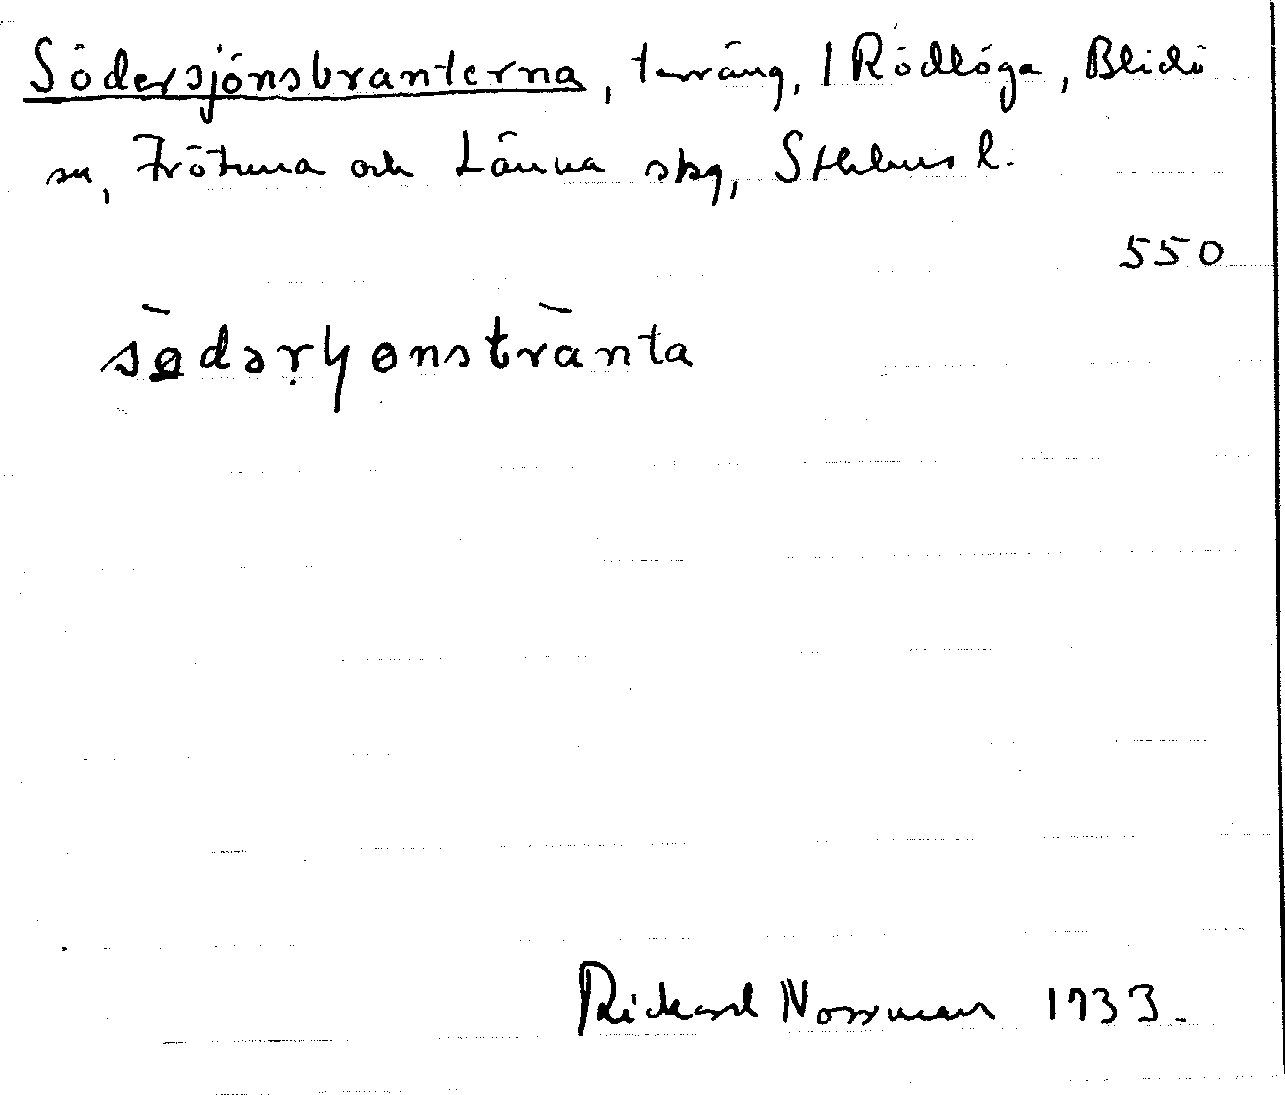 Södersjönsbranterna, terräng, / Rödlöga, Blidö
sn, Frötuna och Länna skg, Sthlms l.
550
sø̄dəṛɧønstrānta
Rickard Norrman 1933.